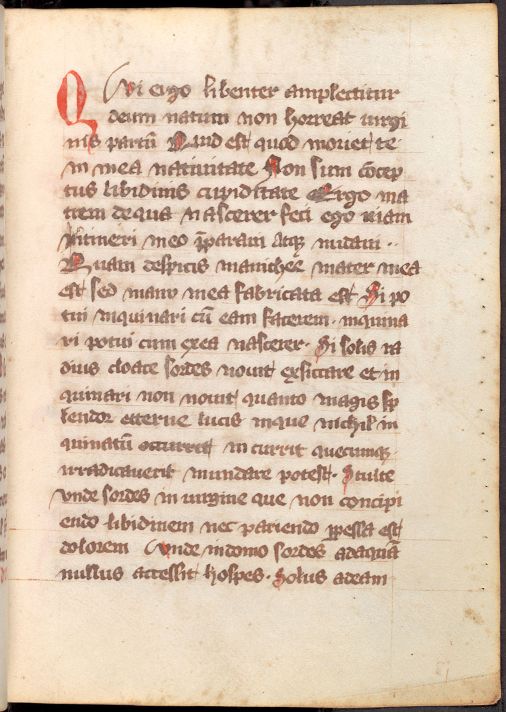 Qvi ergo libenter amplectitur
deum natum non horreat uirgi
nis partū Quid est quod mouet te
in mea natiuitate Non sum cōcep
tus libidinis cupiditate Ergo ma
trem de qua nascerer feci ego uiam
itineri meo p̄paraui atq̄ mūdaui ··
Quam despicis manichee mater mea
est sed manu mea fabricata est Si po
tui inquinari cū eam facerem · inquina
ri potui cum ex ea nascerer · Si solis ra
dius cloace sordes nouit exsiccare et in
quinari non nouit quanto magis sp̄
lendor eterne lucis in que nichil in
quinatū occurrit incurrit quecumq̄
irradicauerit mundare potest · Stulte
vnde sordes in uirgine que non concipi
endo libidinem nec pariendo ꝑpessa est
dolorem Unde in domo sordes ad quā
nullus accessit hospes · Solus ad eam